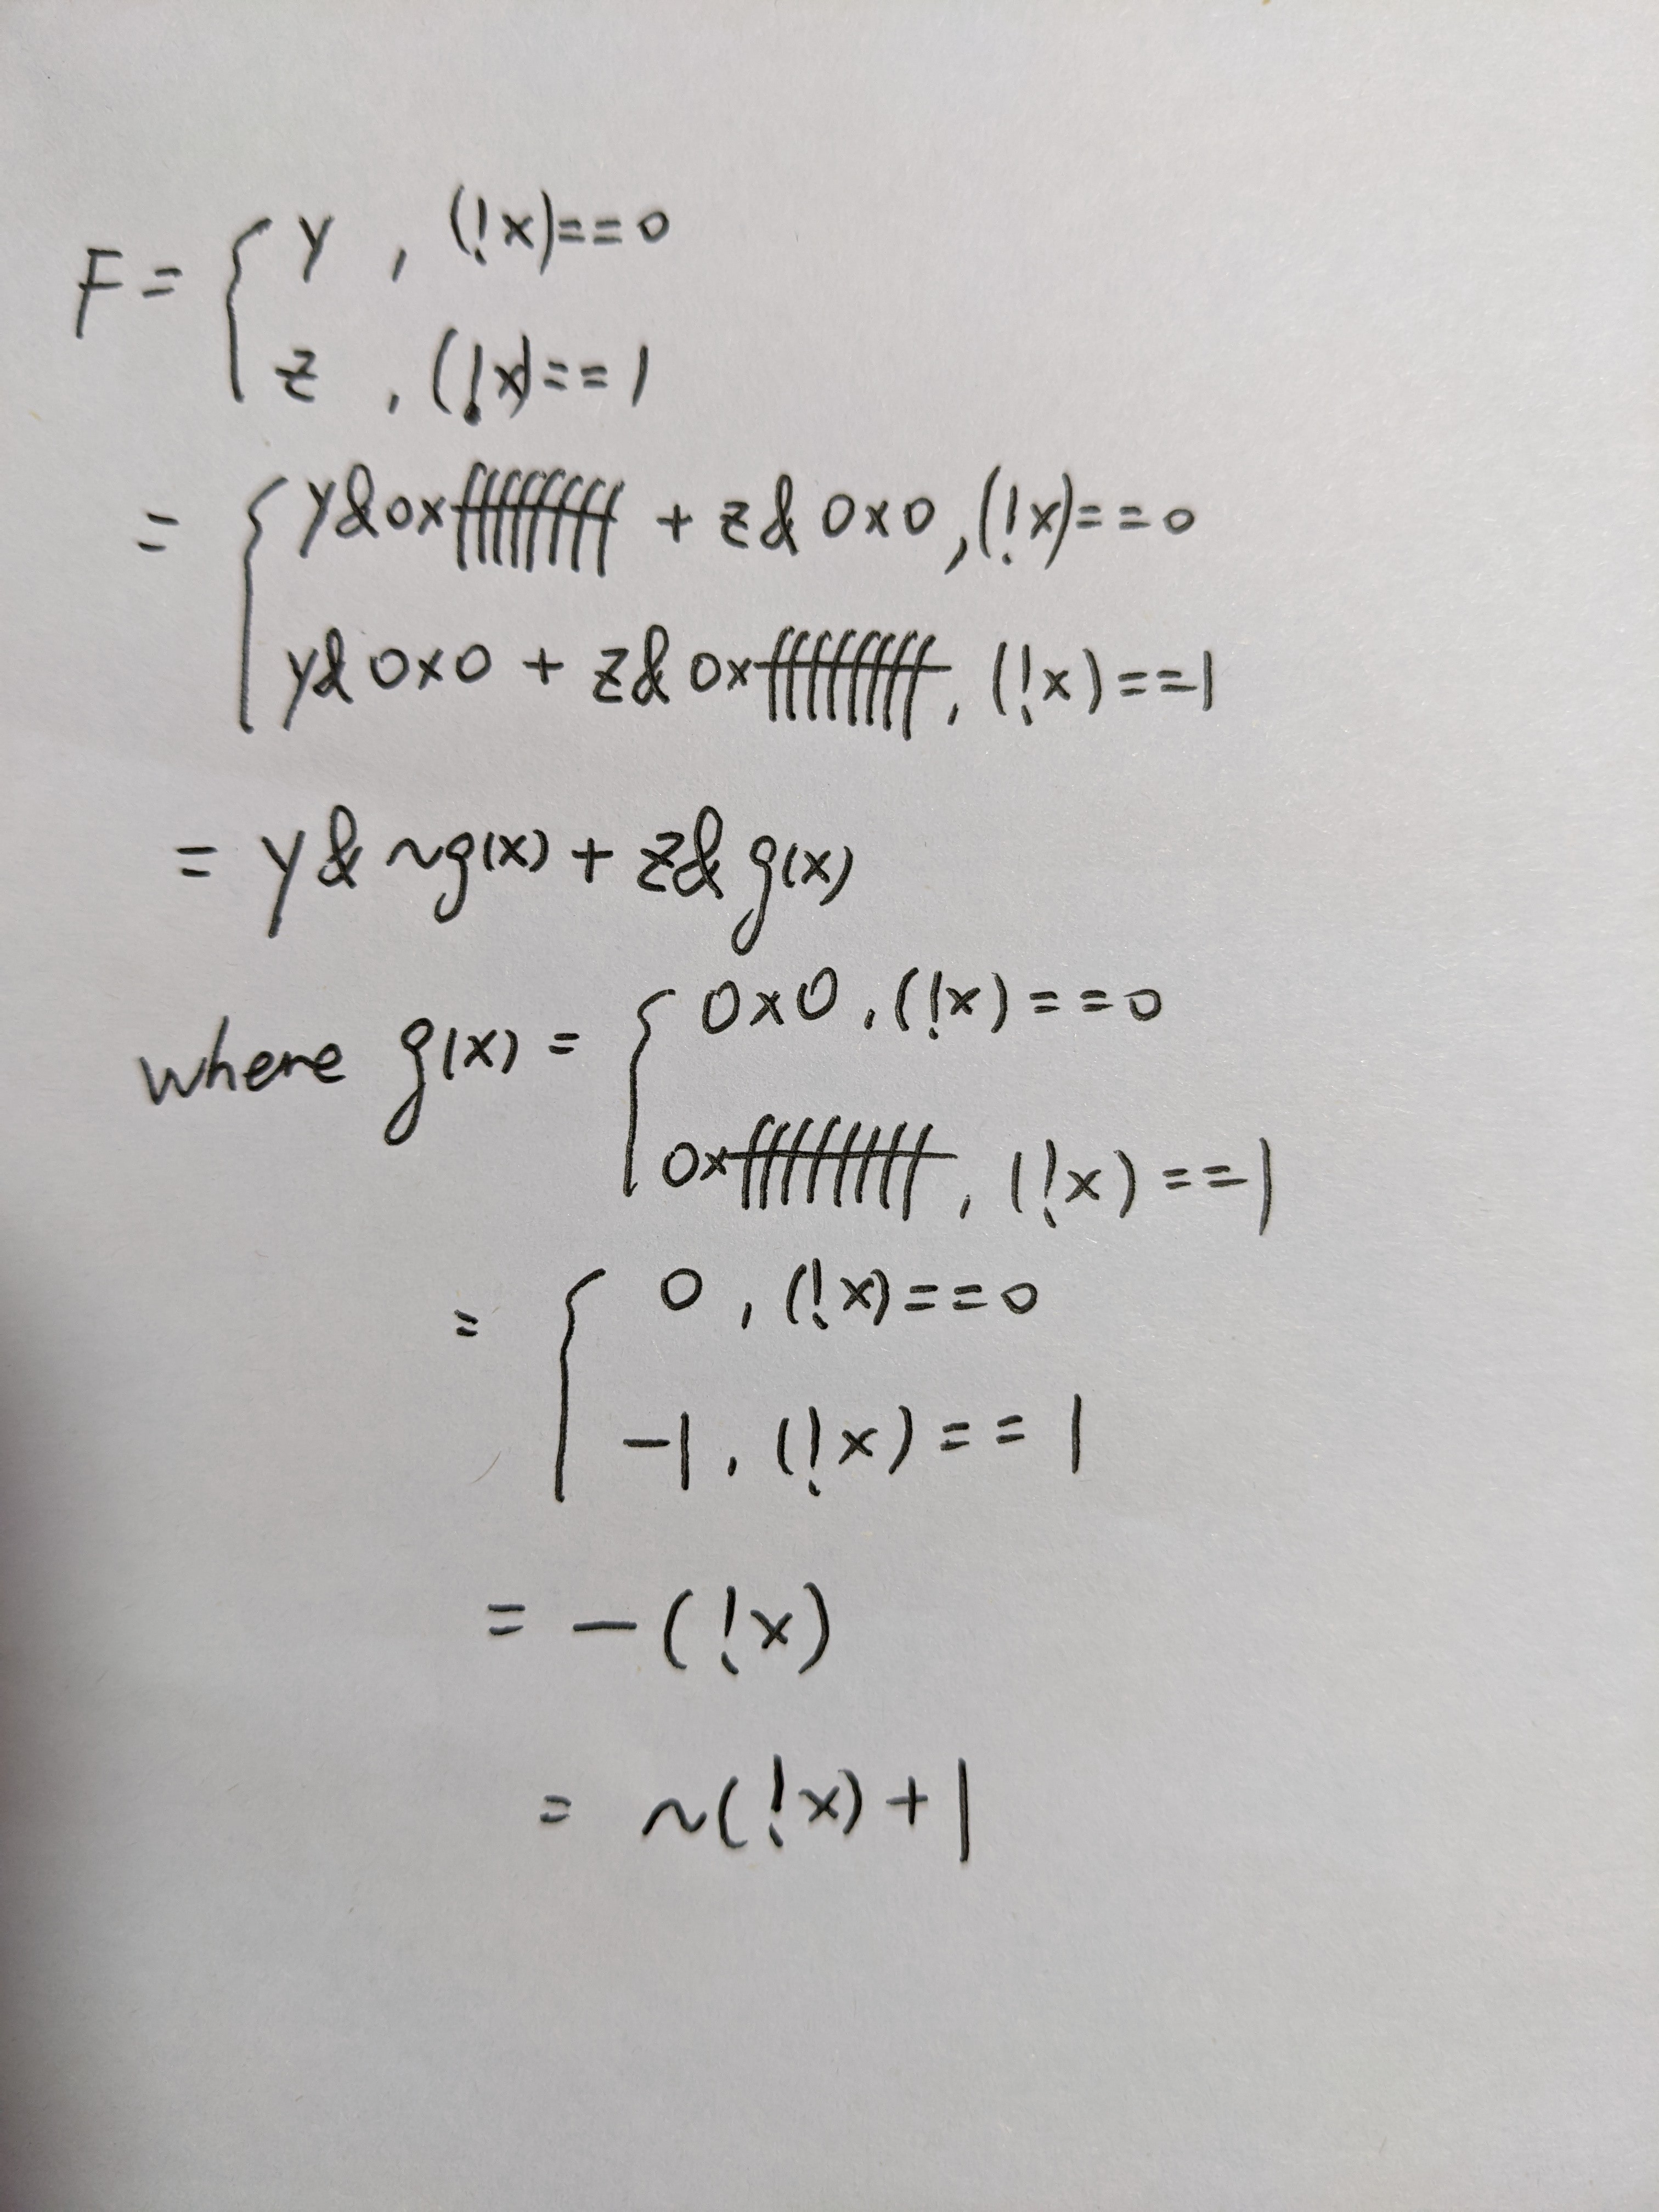 F = { y , (!x)==0
z , (!x)==1
= { y&0xffffffff + z&0x0, (!x)==0
y&0x0 + z&0xffffffff, (!x)==1
= y&~g(x) + z&g(x)
where g(x) = { 0x0, (!x)==0
0xffffffff, (!x)==1
= { 0, (!x)==0
-1, (!x)==1
= -(!x)
= ~(!x)+1